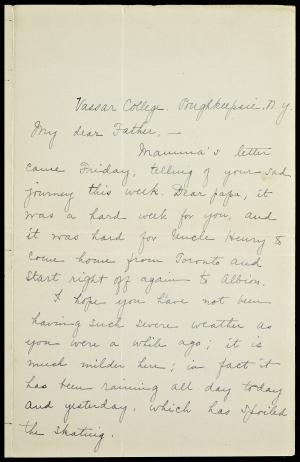 Vassar College. Poughkeepsie. N.Y.
My dear Father, —
Mamma's letter
came Friday, telling of your sad
journey this week. Dear papa, it
was a hard week for you, and
it was hard for Uncle Henry to
come home from Toronto and
start right off again to Albion.
I hope you have not been
having such severe weather as
you were a while ago; it is
much milder here; in fact it
has been raining all day today
and yesterday, which has spoiled
the skating.